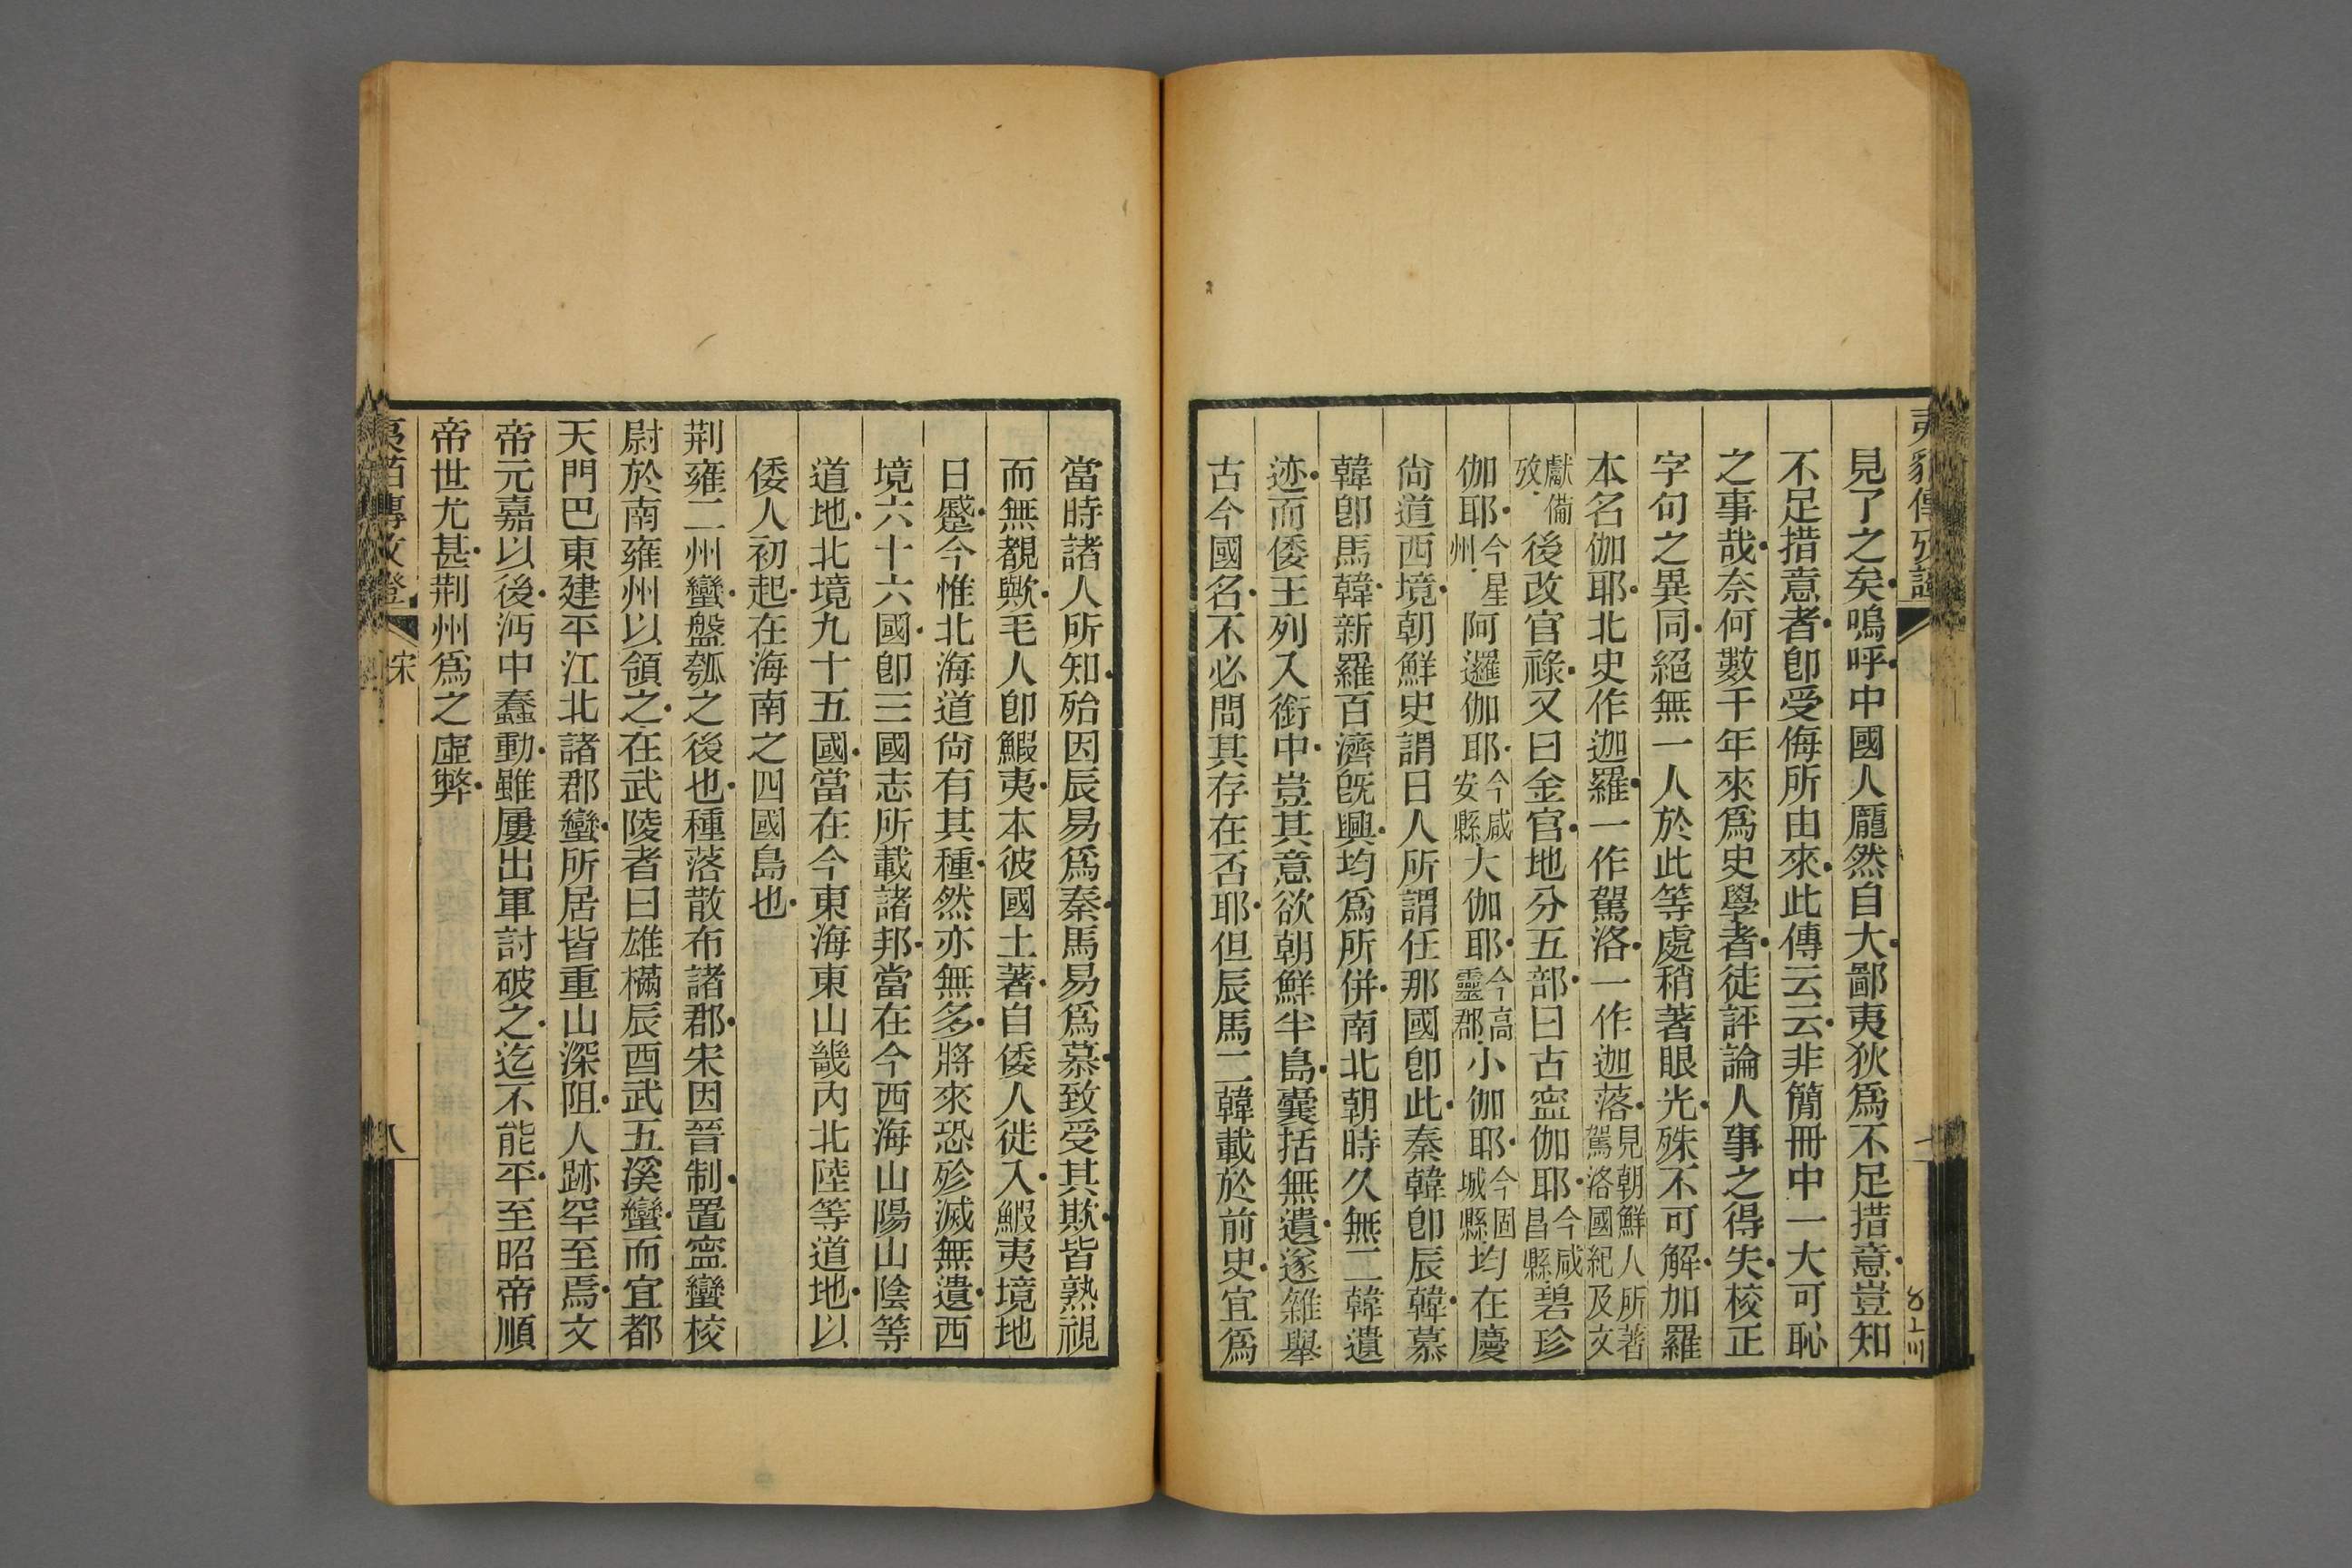 見了之矣嗚呼中國人龐然自大鄙夷狄爲不足措意豈知
不足措意者卽受侮所由來此傳云云非簡冊中一大可恥
之事哉奈何數千年來爲史學者徒評論人事之得失校正
字句之異同絕無一人於此等處稍著眼光殊不可解加羅
本名伽耶北史作迦羅一作駕洛一作迦落見朝鮮人所著駕洛國紀及文
獻備攷後改官祿又曰金官地分五部曰古寍伽耶今咸昌縣碧珍
伽耶今星州阿邏伽耶今咸安縣大伽耶今高靈郡小伽耶今固城縣均在慶
尙道西境朝鮮史謂日人所謂任那國卽此秦韓卽辰韓慕
韓卽馬韓新羅百濟旣興均爲所併南北朝時久無二韓遺
迹而倭王列入銜中豈其意欲朝鮮半島囊括無遺遂雜舉
古今國名不必問其存在否耶但辰馬二韓載於前史宜爲
當時諸人所知殆因辰易爲秦馬易爲慕致受其欺皆熟視
而無覩歟毛人卽鰕夷本彼國土著自倭人徙入鰕夷境地
日蹙今惟北海道尙有其種然亦無多將來恐殄滅無遺西
境六十六國卽三國志所載諸邦當在今西海山陽山陰等
道地北境九十五國當在今東海東山畿內北陸等道地以
倭人初起在海南之四國島也
荆雍二州蠻盤瓠之後也種落散布諸郡宋因晉制置寍蠻校
尉於南雍州以領之在武陵者曰雄樠辰酉武五溪蠻而宜都
天門巴東建平江北諸郡蠻所居皆重山深阻人跡罕至焉文
帝元嘉以後沔中蠢動雖屢出軍討破之迄不能平至昭帝順
帝世尤甚荆州爲之虛弊
宋
八